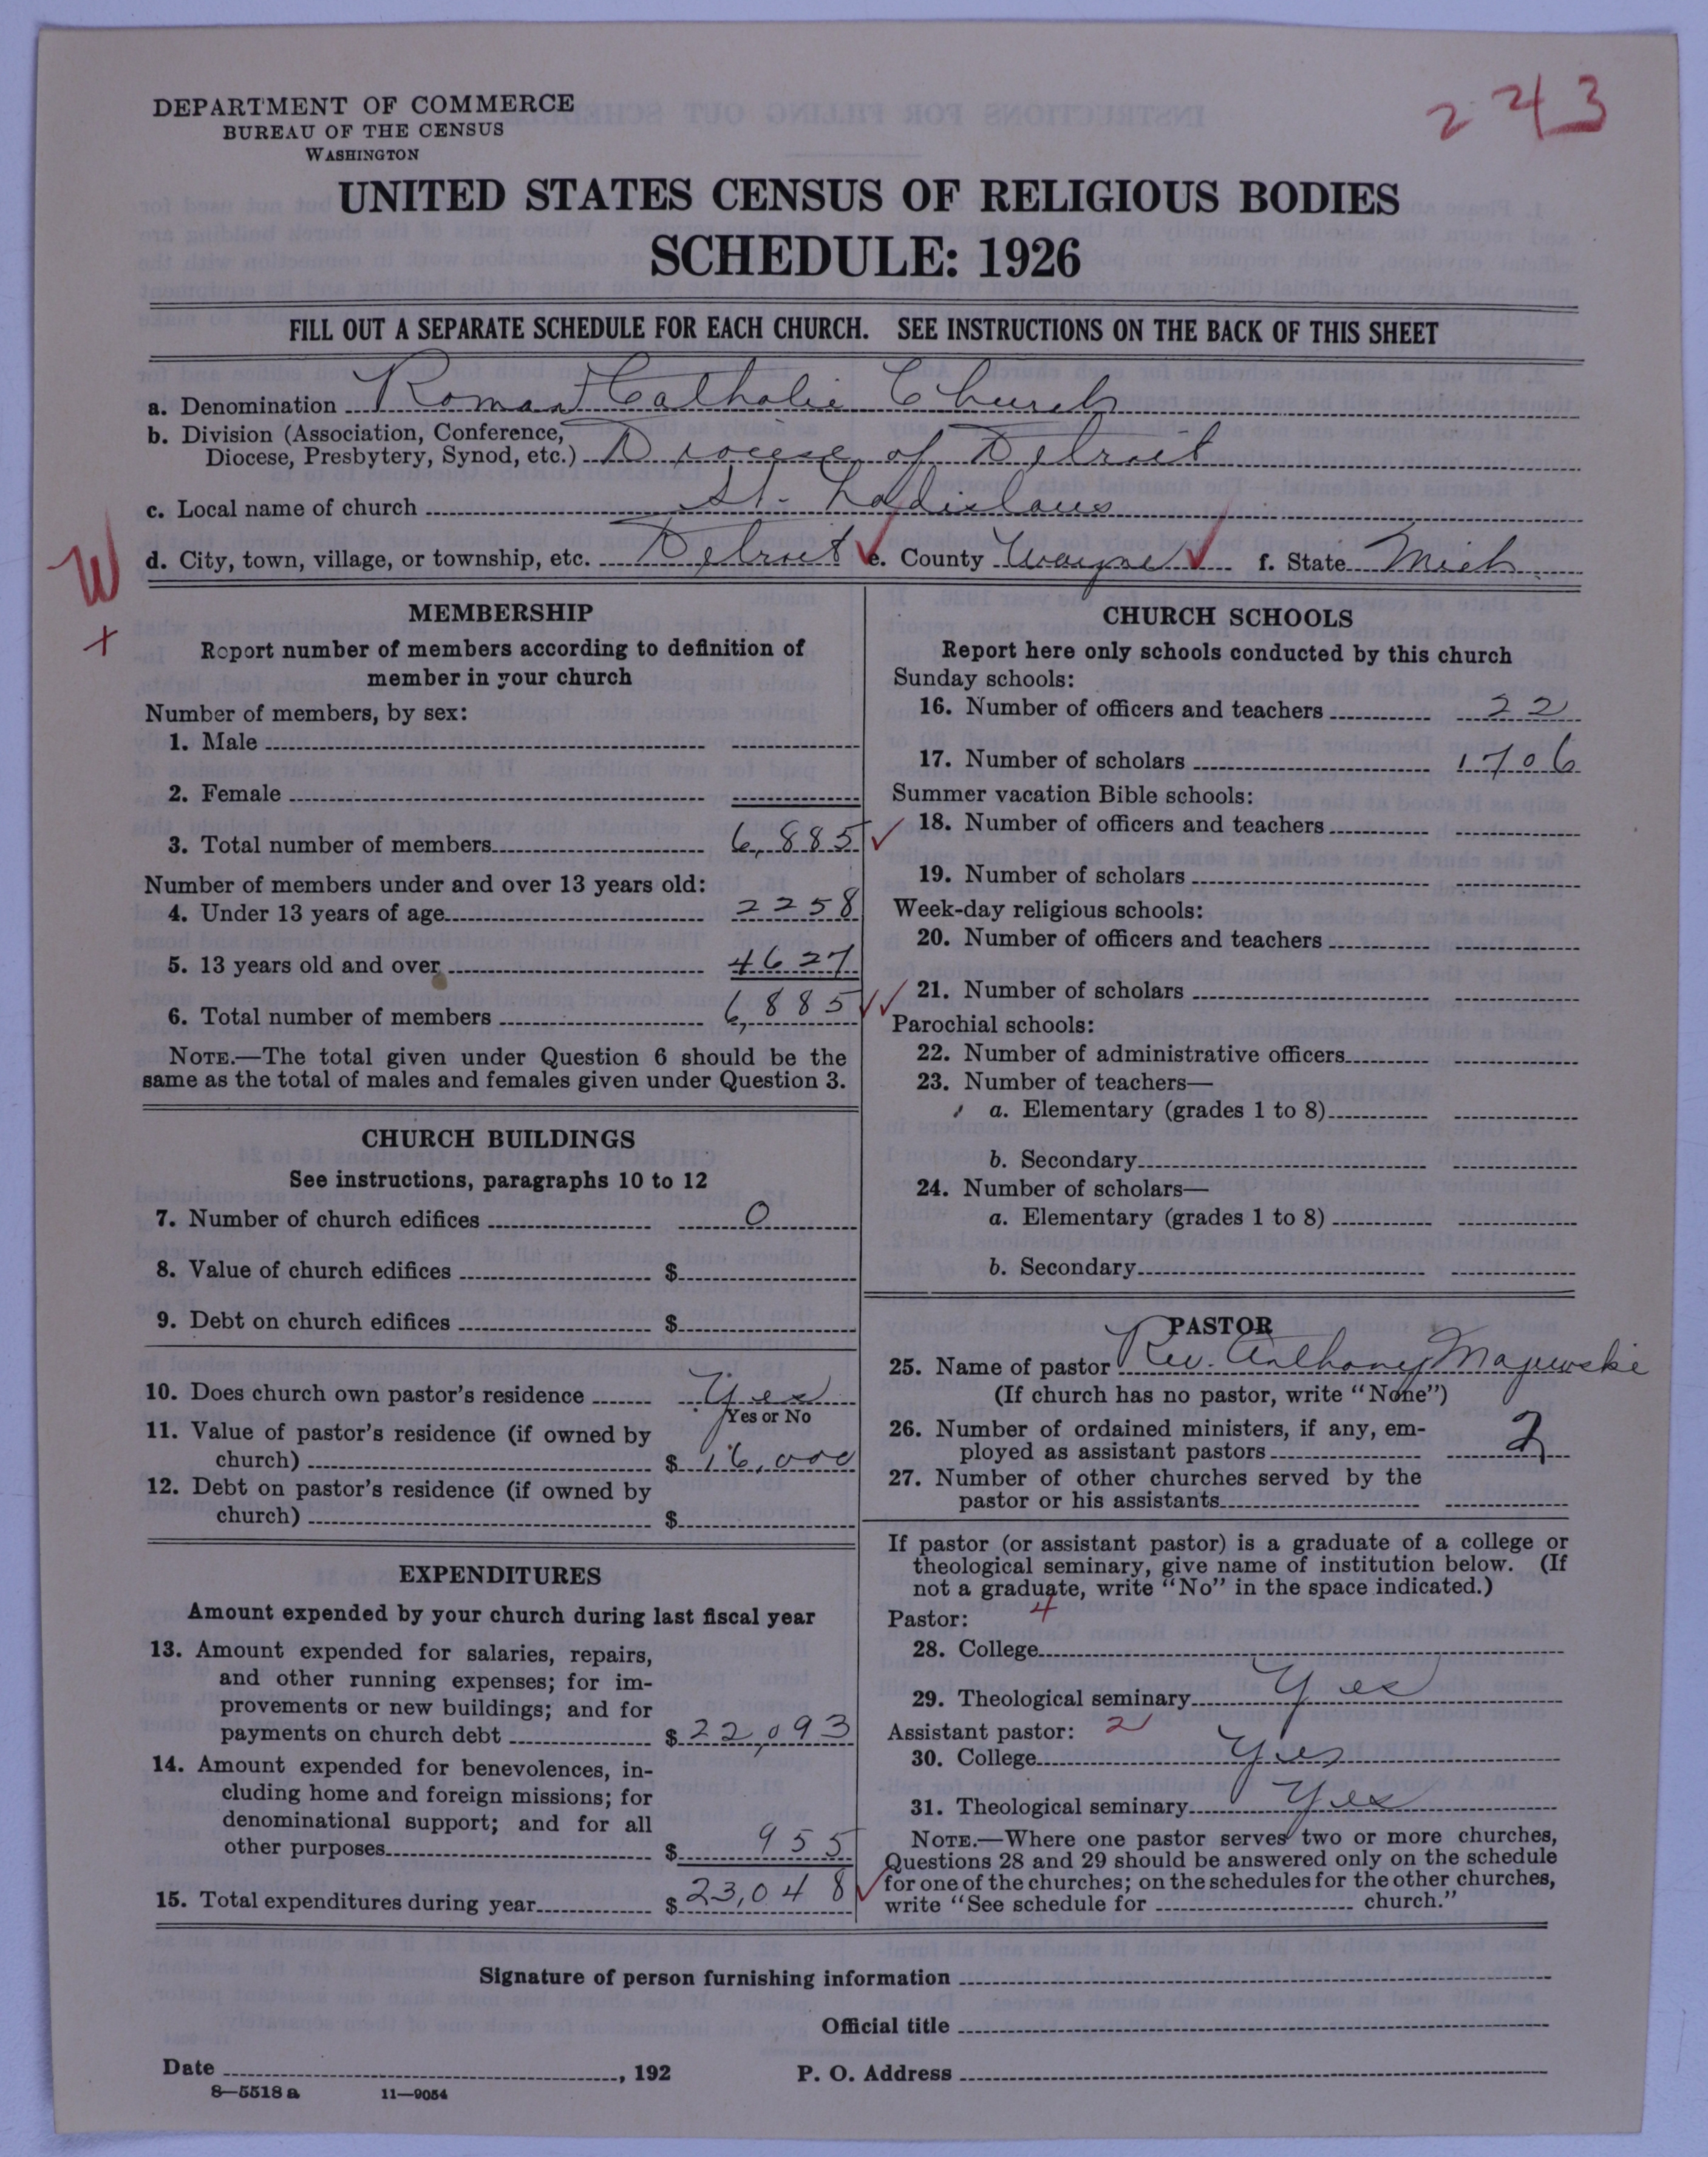 243
DEPARTMENT OF COMMERCE
BUREAU OF THE CENSUS
WASHINGTON
UNITED STATES CENSUS OF RELIGIOUS BODIES
SCHEDULE: 1926
FILL OUT A SEPARATE SCHEDULE FOR EACH CHURCH. SEE INSTRUCTIONS ON THE BACK OF THIS SHEET
a. Denomination Roman Catholic Church
b. Division (Association, Conference,
Diocese, Presbytery, Synod, etc.) Diocese of Detroit
c. Local name of church St. Ladislaus
W
d. City, town, village, or township, etc. Detroit ✓ e. County Wayne ✓ f. State Mich
+
MEMBERSHIP
Report number of members according to definition of
member in your church
Number of members, by sex:
1. Male
2. Female
3. Total number of members 6,885 ✓
Number of members under and over 13 years old:
4. Under 13 years of age 2258
5. 13 years old and over 4627
6. Total number of members 6,885 ✓✓
NOTE.—The total given under Question 6 should be the
same as the total of males and females given under Question 3.
CHURCH BUILDINGS
See instructions, paragraphs 10 to 12
7. Number of church edifices 0
8. Value of church edifices $
9. Debt on church edifices $
10. Does church own pastor's residence Yes
Yes or No
11. Value of pastor's residence (if owned by
church) $ 16,000
12. Debt on pastor's residence (if owned by
church) $
EXPENDITURES
Amount expended by your church during last fiscal year
13. Amount expended for salaries, repairs,
and other running expenses; for im-
provements or new buildings; and for
payments on church debt $ 22,093
14. Amount expended for benevolences, in-
cluding home and foreign missions; for
denominational support; and for all
other purposes $ 955
15. Total expenditures during year $ 23,048 ✓
CHURCH SCHOOLS
Report here only schools conducted by this church
Sunday schools:
16. Number of officers and teachers 22
17. Number of scholars 1706
Summer vacation Bible schools:
18. Number of officers and teachers
19. Number of scholars
Week-day religious schools:
20. Number of officers and teachers
21. Number of scholars
Parochial schools:
22. Number of administrative officers
23. Number of teachers—
a. Elementary (grades 1 to 8)
b. Secondary
24. Number of scholars—
a. Elementary (grades 1 to 8)
b. Secondary
PASTOR
25. Name of pastor Rev. Anthony Majewski
(If church has no pastor, write "None")
26. Number of ordained ministers, if any, em-
ployed as assistant pastors 2
27. Number of other churches served by the
pastor or his assistants
If pastor (or assistant pastor) is a graduate of a college or
theological seminary, give name of institution below. (If
not a graduate, write "No" in the space indicated.)
Pastor: 4
28. College
29. Theological seminary Yes
Assistant pastor: 2
30. College Yes
31. Theological seminary Yes
NOTE.—Where one pastor serves two or more churches,
Questions 28 and 29 should be answered only on the schedule
for one of the churches; on the schedules for the other churches,
write "See schedule for church."
Signature of person furnishing information
Official title
Date , 192 P. O. Address
8—5518 a 11—9054